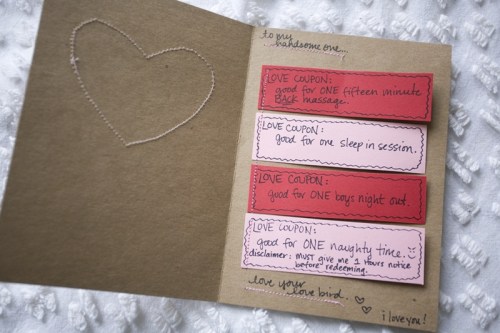 to my
handsome one
LOVE COUPON:
good for ONE fifteen minute
BACK massage.
LOVE COUPON:
good for one sleep in session.
LOVE COUPON:
good for ONE boys night out.
LOVE COUPON:
good for ONE naughty time.
disclaimer: must give me 1 hours notice
before redeeming.
love your
love bird.
i love you!